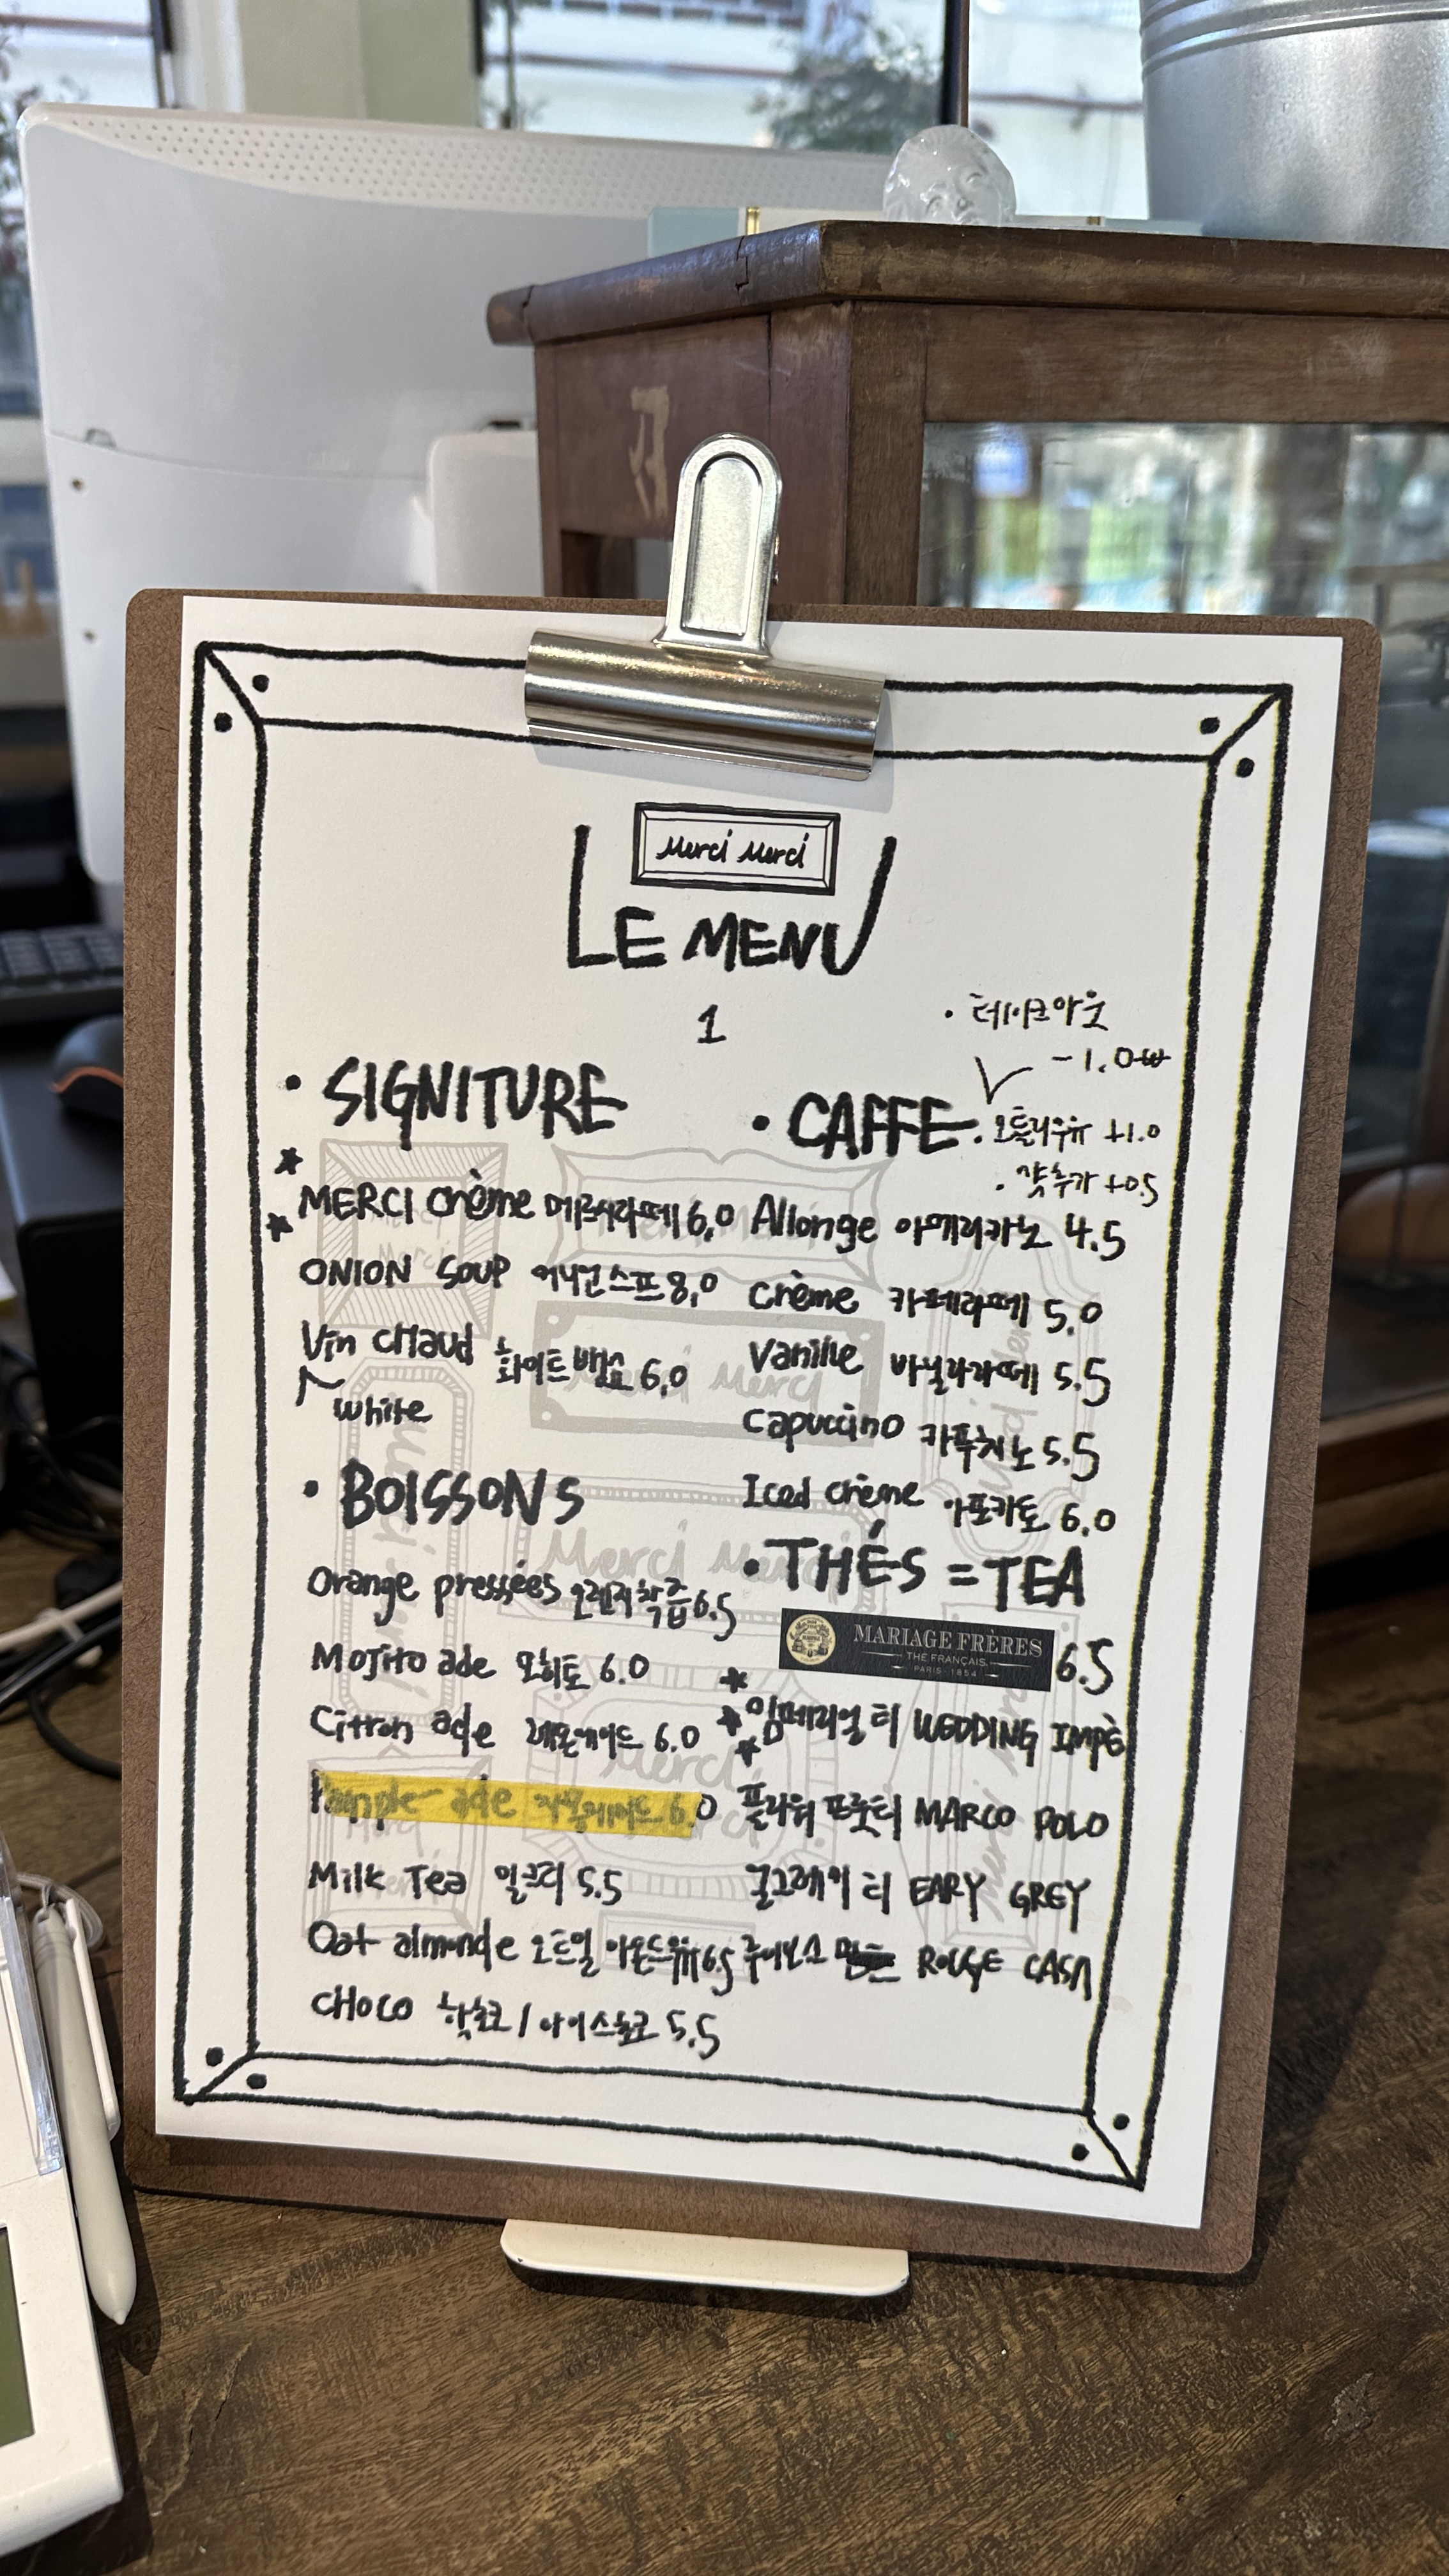 Merci Merci
LE MENU
1
· 테이크아웃
- 1.0₩
· SIGNITURE
MERCI Crème 메르시라떼 6.0
ONION SOUP 어니언스프 8.0
Vin CHaud 화이트뱅쇼 6.0
white
· BOISSONS
Orange pressées 오렌지착즙 6.5
MOJITO ade 모히토 6.0
Citron ade 레몬에이드 6.0
Pample ade 자몽에이드 6.0
Milk Tea 밀크티 5.5
Oat almonde 오트밀 아몬드유 6.5
CHOCO 핫초코 / 아이스초코 5.5
· CAFFE
· 오틀리우유 +1.0
· 샷추가 +0.5
Allonge 아메리카노 4.5
Crème 카페라떼 5.0
Vanille 바닐라라떼 5.5
Capuccino 카푸치노 5.5
Iced crème 아포카토 6.0
· THÉS = TEA
MARIAGE FRÈRES
THÉ FRANÇAIS
PARIS · 1854
6.5
임페리얼 티 WEDDING IMPÈ
플라워 프룻티 MARCO POLO
얼그레이 티 EARY GREY
루이보스 ROUGE CASA